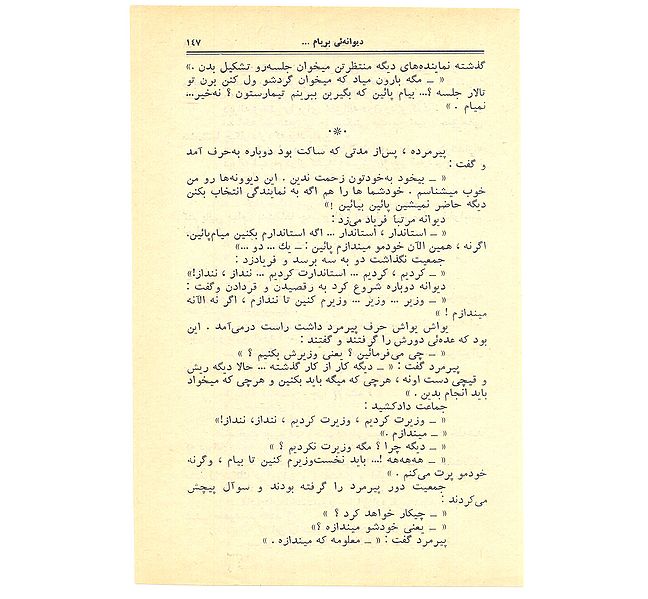 دیوانه‌ئی بربام ...
۱٤۷
گذشته نماینده‌های دیگه منتظرتن میخوان جلسه‌رو تشکیل بدن .»
« ـ مگه بارون میاد که میخوان گردشو ول کنن برن تو
تالار جلسه ؟... بیام پائین که بگیرین ببرینم تیمارستون ؟ نه‌خیر...
نمیام . »
پیرمرده ، پس‌از مدتی که ساکت بود دوباره به‌حرف آمد
و گفت :
« ـ بیخود به‌خودتون زحمت ندین . این دیوونه‌ها رو من
خوب میشناسم . خودشما ها را هم اگه به نمایندگی انتخاب بکنن
دیگه حاضر نمیشین پائین بیائین !»
دیوانه مرتباً فریاد می‌زد :
« ـ استاندار ، استاندار ... اگه استاندارم بکنین میام‌پائین.
اگرنه ، همین الآن خودمو میندازم پائین : ـ یك ... دو ...»
جمعیت نگذاشت دو به سه برسد و فریادزد :
« ـ کردیم ، کردیم ... استاندارت کردیم ... ننداز ، ننداز!»
دیوانه دوباره شروع کرد به رقصیدن و قردادن وگفت :
« ـ وزیر ... وزیر ... وزیرم کنین تا نندازم ، اگر نه الآنه
میندازم ! »
یواش یواش حرف پیرمرد داشت راست درمی‌آمد . این
بود که عده‌ئی دورش را گرفتند و گفتند :
« ـ چی می‌فرمائین ؟ یعنی وزیرش بکنیم ؟ »
پیرمرد گفت : « ـ دیگه کار از کار گذشته ... حالا دیگه ریش
و قیچی دست اونه ، هرچی که میگه باید بکنین و هرچی که میخواد
باید انجام بدین . »
جماعت دادکشید :
« ـ وزیرت کردیم ، وزیرت کردیم ، ننداز، ننداز!»
« ـ میندازم .»
« ـ دیگه چرا ؟ مگه وزیرت نکردیم ؟ »
« ـ هه‌هه‌هه !... باید نخست‌وزیرم کنین تا بیام ، وگرنه
خودمو پرت می‌کنم . »
جمعیت دور پیرمرد را گرفته بودند و سوآل پیچش
می‌کردند :
« ـ چیکار خواهد کرد ؟ »
« ـ یعنی خودشو میندازه ؟»
پیرمرد گفت : « ـ معلومه که میندازه . »